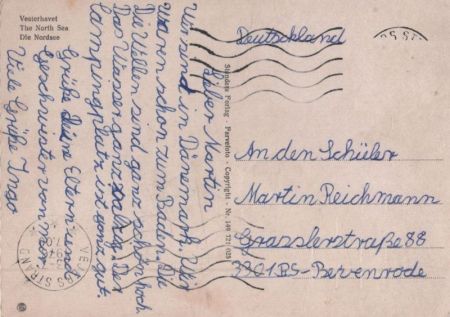 Vesterhavet
The North Sea
Die Nordsee
Lieber Martin
Wir sind in Dänemark. Wir
waren schon zum Baden. Die
Die Wellen sind ganz schön hoch.
Das Wasser ganz salzig. Der
Campingplatz ist ganz gut.
Grüße Deine Eltern und
Geschwister von mir.
Viele Grüße Ingo
Stenders Forlag - Farvefoto - Copyright - Nr.
Deutschland
An den Schüler
Martin Reichmann
Grasslerstraße 88
3301 BS-Bevenrode
VEJERS STRAND